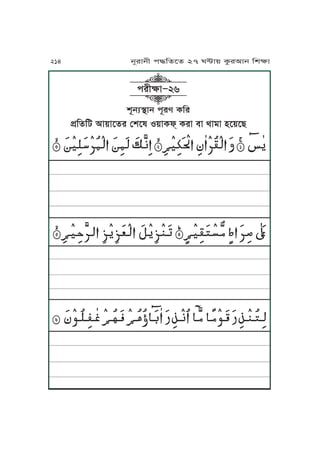 ২১৪ নূরানী পদ্ধতিতে ২৭ ঘন্টায় কুরআন শিক্ষা
পরীক্ষা-২৬
শূন্যস্থান পূরণ করি
প্রতিটি আয়াতের শেষে ওয়াকফ্ করা বা থামা হয়েছে
يٰسٓ ۝ وَ الْقُرْاٰنِ الْحَكِيْمِ ۝ اِنَّكَ لَمِنَ الْمُرْسَلِيْنَ ۝
عَلٰى صِرَاطٍ مُّسْتَقِيْمٍ ۝ تَنْزِيْلَ الْعَزِيْزِ الرَّحِيْمِ ۝
لِتُنْذِرَ قَوْمًا مَّاۤ اُنْذِرَ اٰبَآؤُهُمْ فَهُمْ غٰفِلُوْنَ ۝